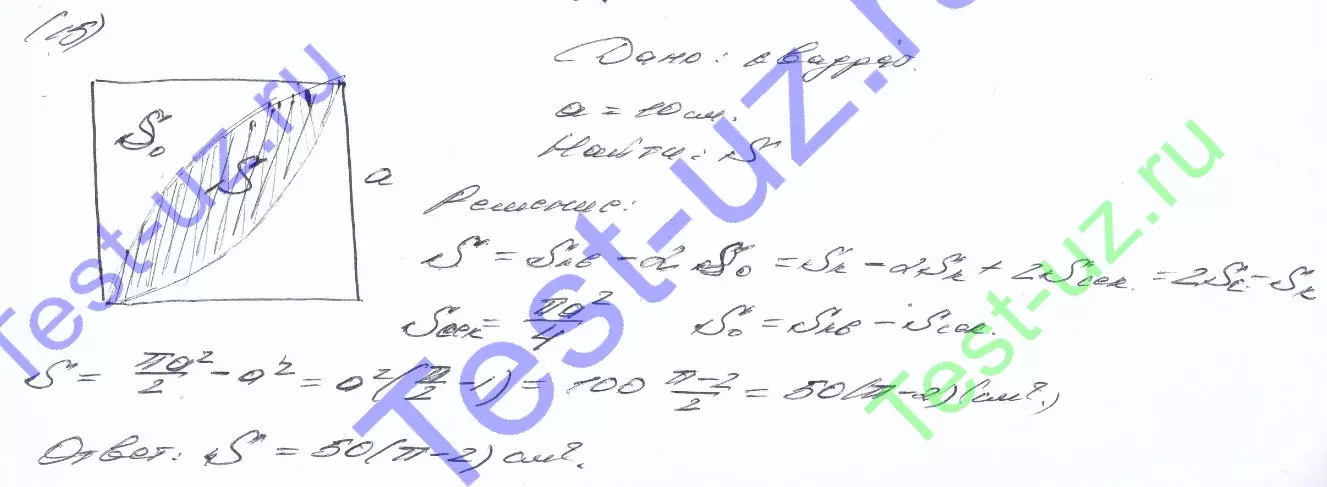 (15)
Дано: квадрат.
a = 10 см.
Найти: S
S₀
S
a
Решение:
S = Sкв - 2S₀ = Sк - 2Sк + 2Sсек. = 2Sс - Sк
Sсек = πa²/4 S₀ = Sкв - Sсек.
S = πa²/2 - a² = a²(π/2 - 1) = 100 π-2/2 = 50(π-2) (см².)
Ответ: S = 50(π-2) см².
Test-uz.ru
Test-uz.ru
Test-uz.ru